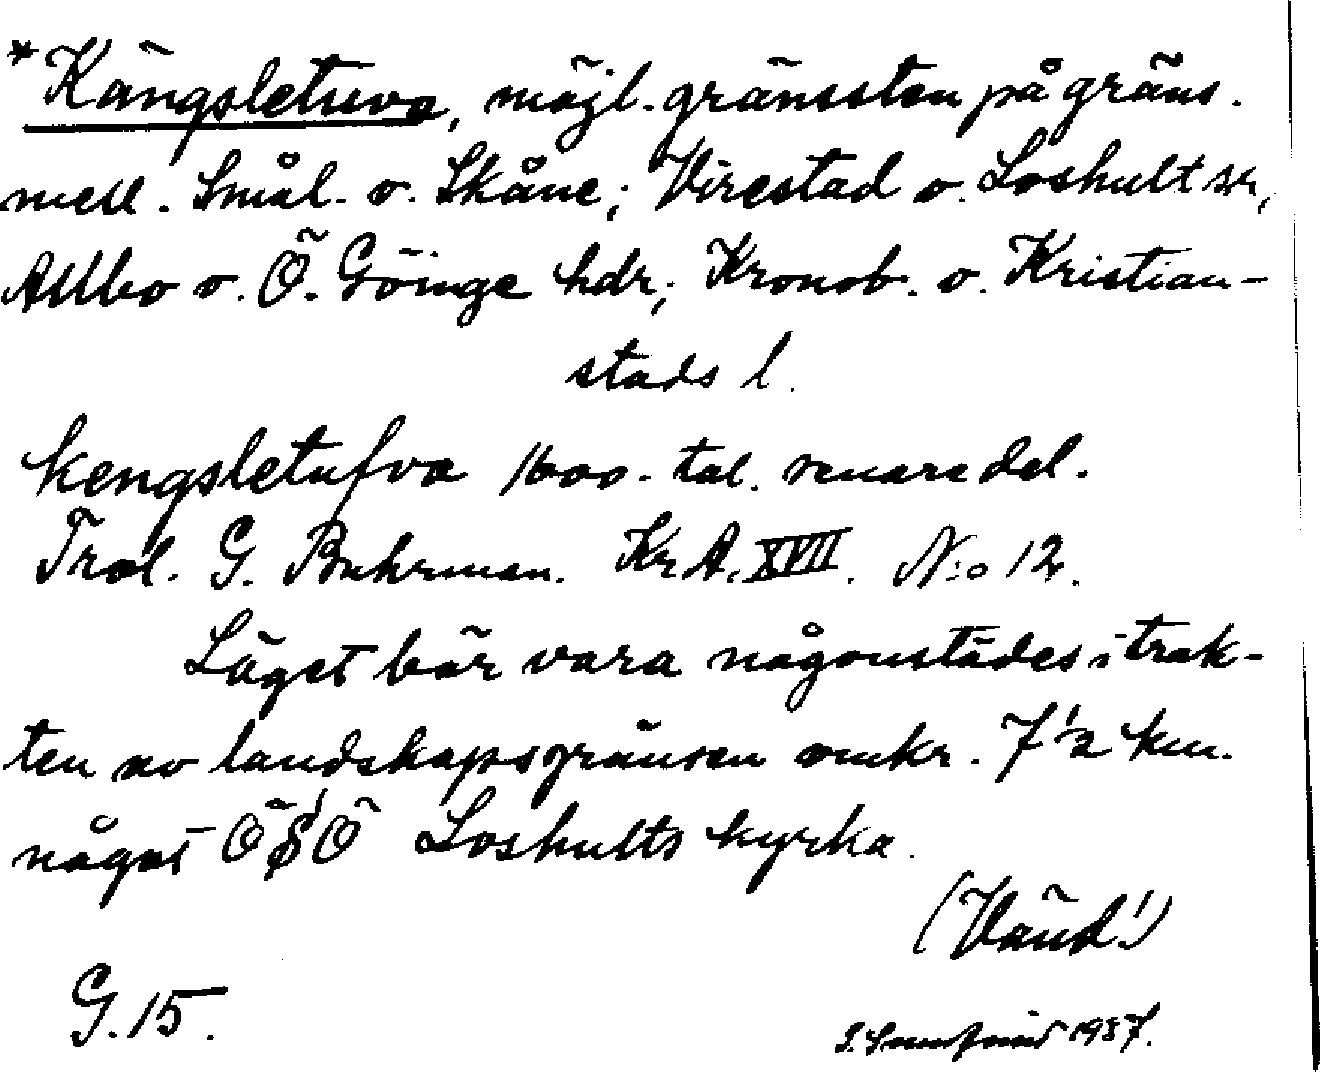 *Kängsletuva, möjl. gränssten på gräns.
mell. Smål. o. Skåne; Virestad o. Loshult snr,
Allbo o. Ö. Göinge hdr; Kronob. o. Kristian-
stads l.
kengsletufva 1600-tal. senare del.
Trol. G. Buhrman. KrA. XVII. N:o 12.
Läget bör vara någonstädes i trak-
ten av landskapsgränsen omkr. 7 1/2 km.
något ÖSÖ Loshults kyrka.
(Vänd!)
G. 15.
1937.